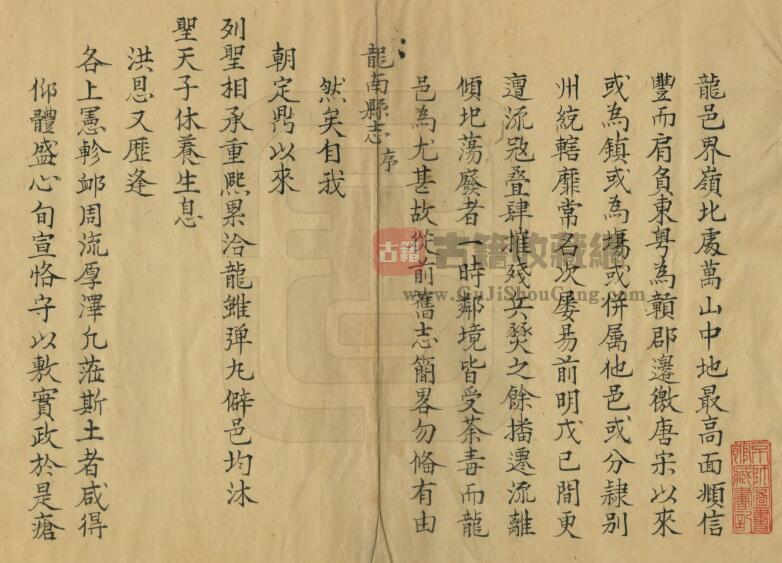 龍邑界嶺北處萬山中地最高面頫信
豐而肩負東粤為贛郡邊徼唐宋以來
或為鎮或為場或併属他邑或分隸别
州統轄靡常名次屡易前明戊己間更
遭流冦疊肆摧殘兵燹之餘播遷流離
傾圮蕩廢者一時鄰境皆受荼毒而龍
邑為尤甚故從前舊志簡畧勿俻有由
龍南縣志 序
然矣自我
朝定鼎以來
列聖相承重熙累洽龍雖彈丸僻邑均沐
聖天子休養生息
洪恩又歷逢
各上憲軫卹周流厚澤凢蒞斯土者咸得
仰體盛心旬宣恪守以敷實政於是瘡
京師圖書館藏書記
古籍 古籍收藏網
www.GuJiShouCang.com